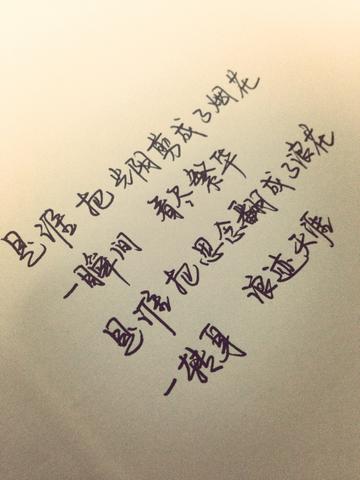 是谁 把光阴剪成了烟花
一瞬间 看尽繁华
是谁 把思念翻成了浪花
一转身 浪迹天涯